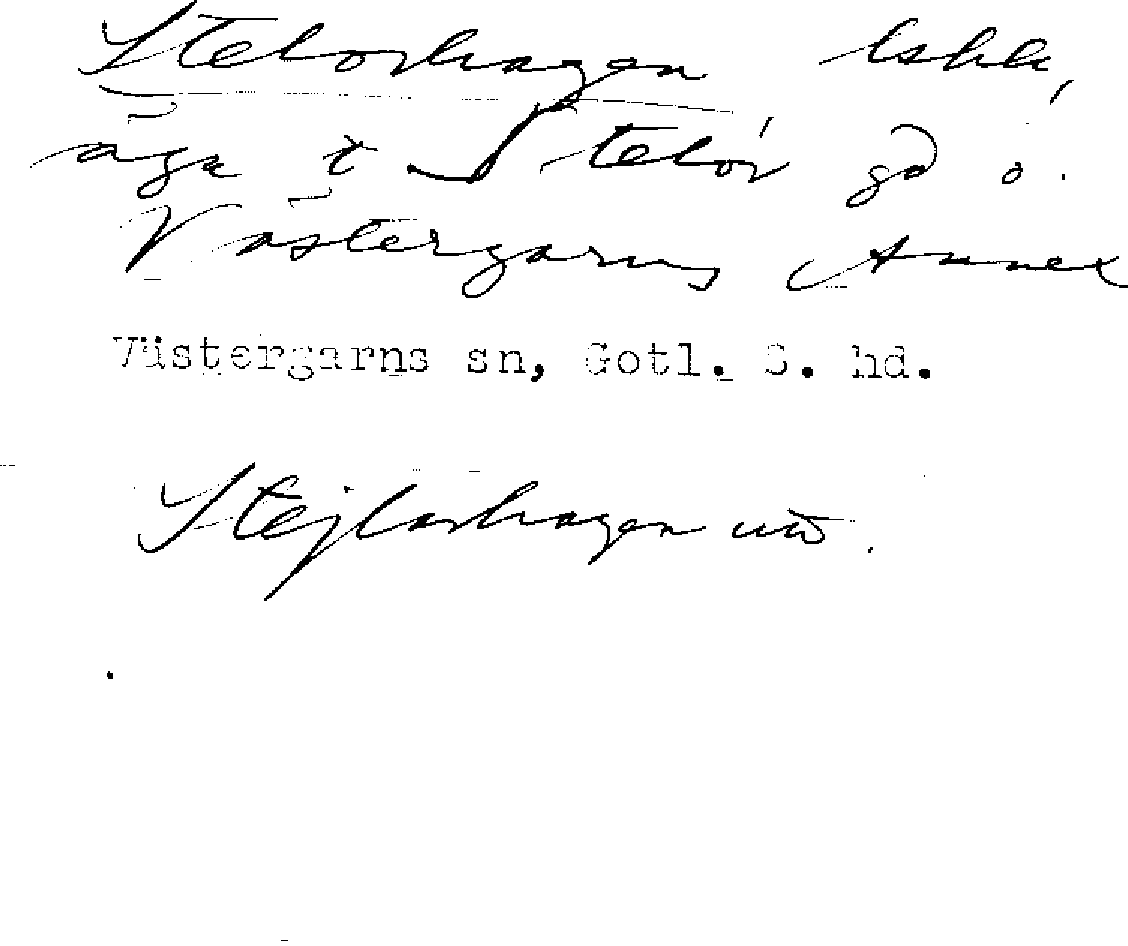 Stelorhagen
äga t Stelor gd o.
Västergarns Annex
Västergarns sn, Gotl. S. hd.
Stejlorhagen